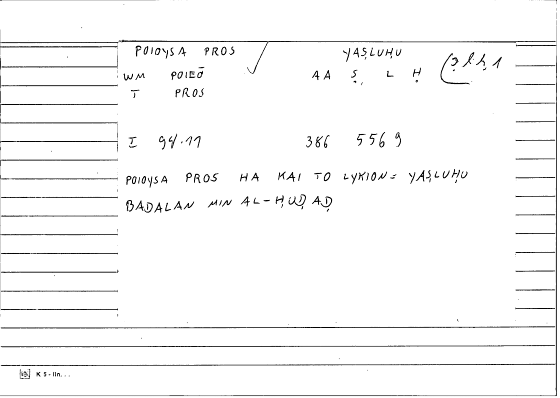 POIOYSA PROS YAṢLUḤU
WM POIEŌ AA Ṣ L Ḥ
T PROS
I 94.11 386 5569
POIOYSA PROS HA KAI TO LYKION = YAṢLUḤU
BADALAN MIN AL-ḤUḌAḌ
K 5 - lin...